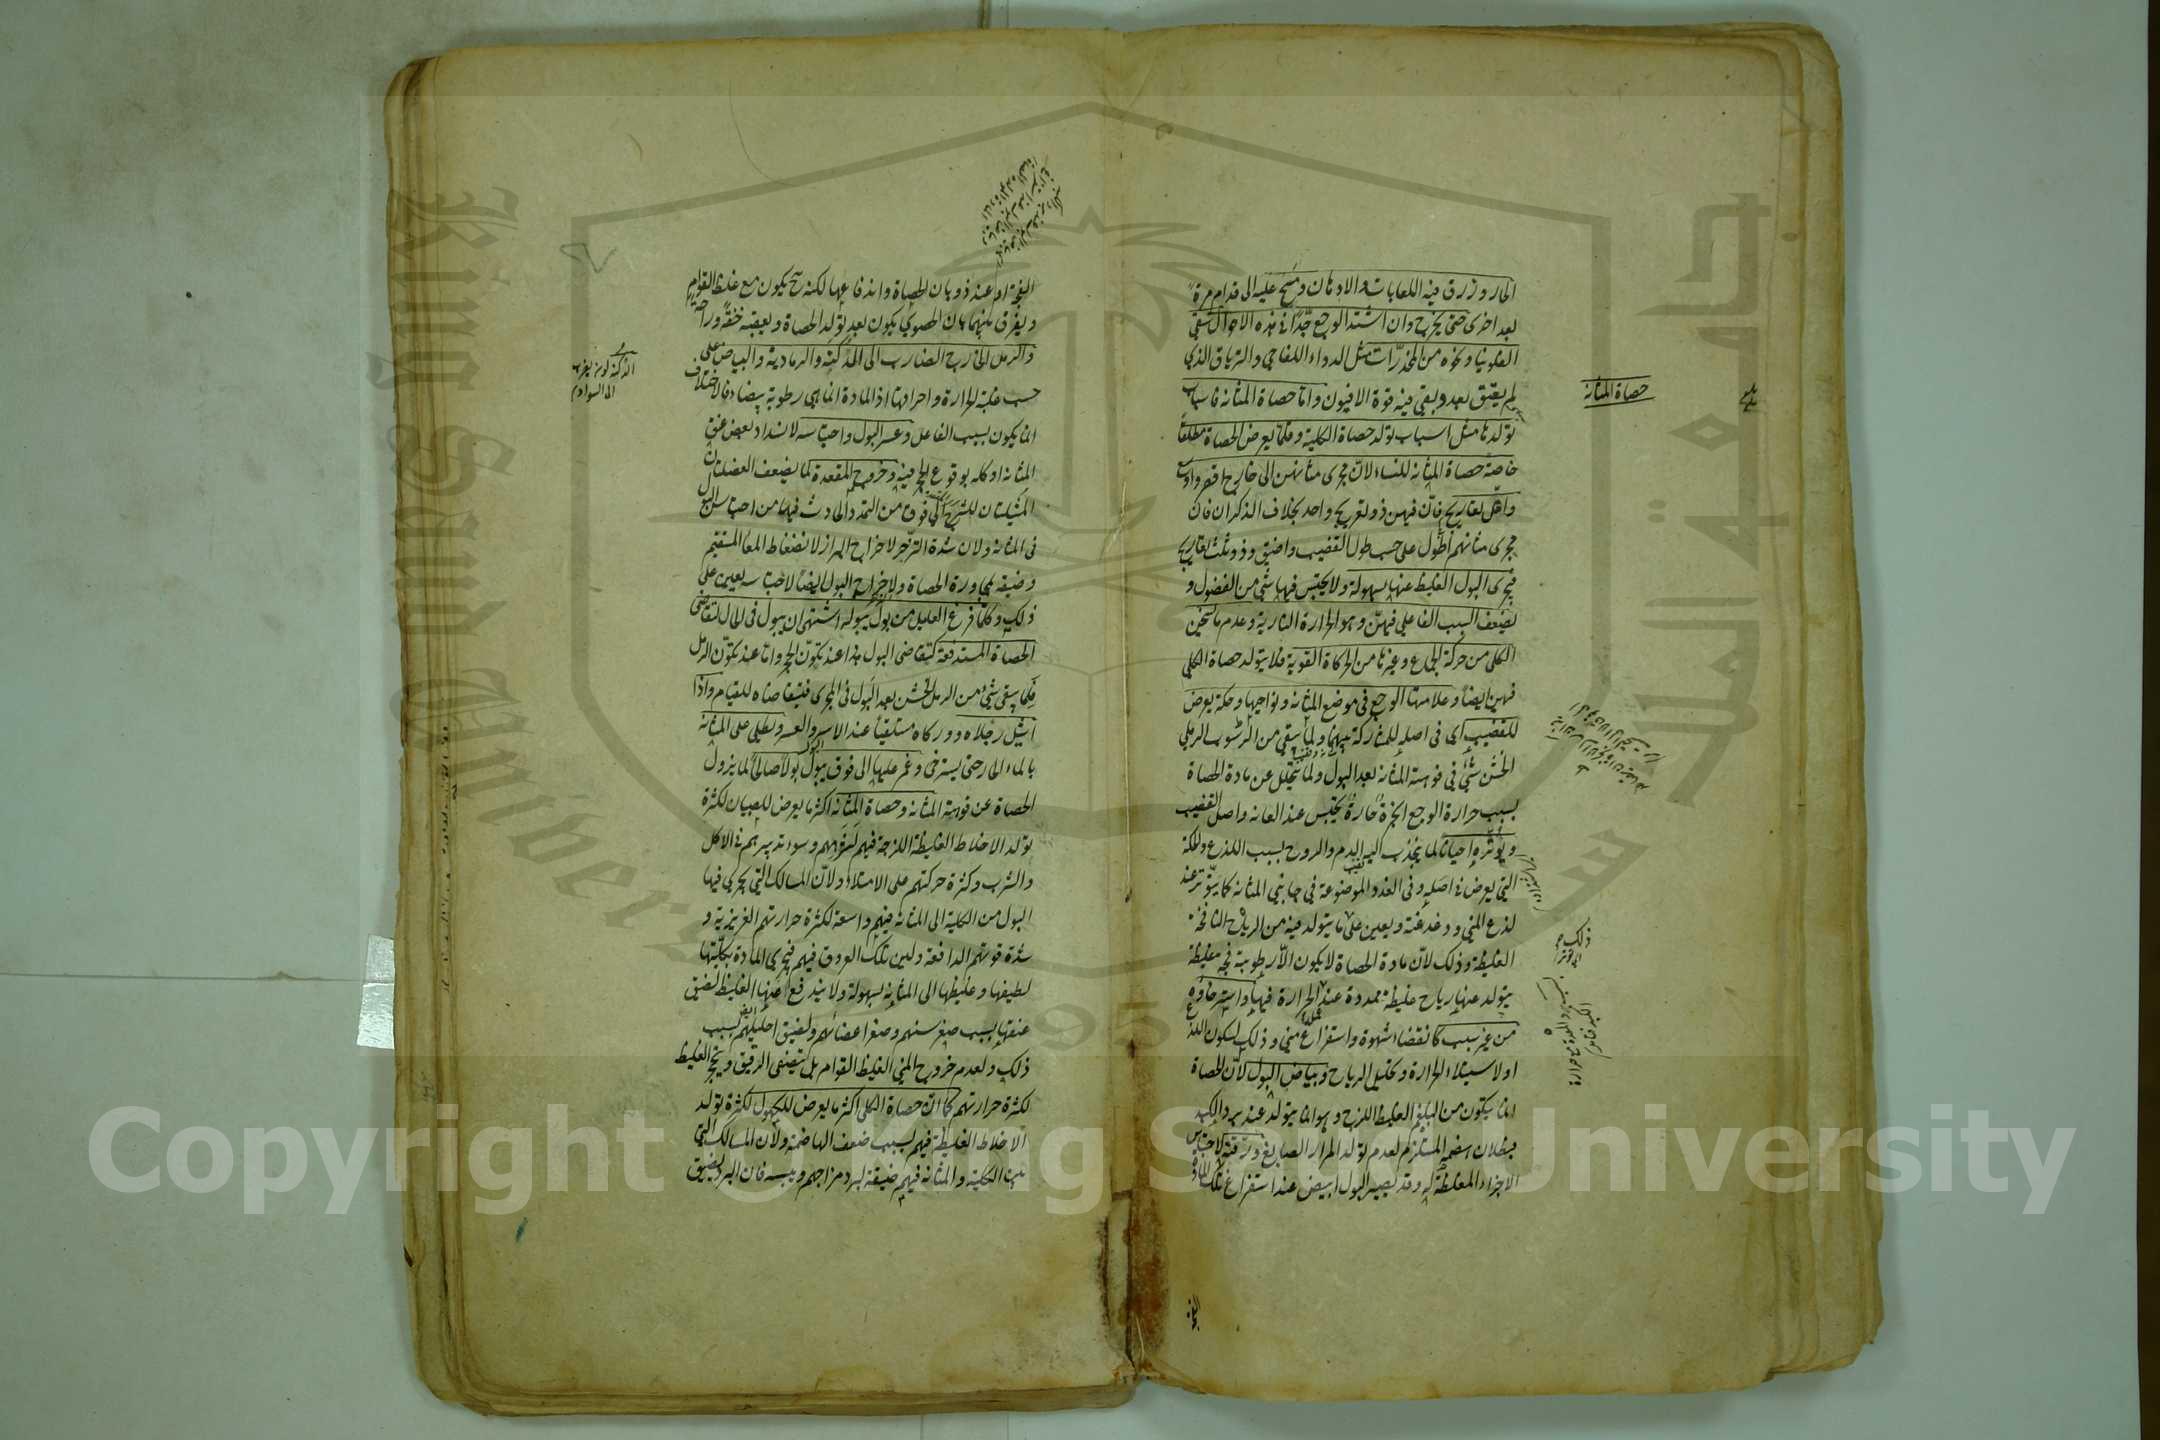 الحار وزرق فيه اللعابات والادهان ومسح عليه الى قدام مرة
بعد اخرى حتى يخرج وان اشتد الوجع جدا في هذه الاحوال سقي
الفلونيا ونحوه من المخدرات مثل الدواء اللفاحي والترياق الذي
لم يعتق بعد وبقي فيه قوة الافيون واما حصاة المثانة فاسباب
تولدها مثل اسباب تولد حصاة الكلية وقلما يعرض الحصاة مطلقا
خاصة حصاة المثانة للنساء لان مجرى مثانتهن الى خارج اقصر واوسع
واقل تعاريج فان فيهن ذو تعريج واحد بخلاف الذكران فان
مجرى مثانتهم اطول على حسب طول القضيب واضيق وذو ثلث تعاريج
فيجرى البول الغليظ عنها بسهولة ولا يحتبس فيها شئ من الفضول و
لضعف السبب الفاعلي فيهن وهو الحرارة النارية وعدم ما يسخن
الكلى من حركة الجماع وغيرها من الحركات القوية فلا يتولد حصاة الكلي
فيهن ايضا وعلامتها الوجع في موضع المثانة ونواحيها وحكة يعرض
للقضيب اى فى اصله للمشاركة بينهما ولما يبقي من الرسوب الرملي
الخشن شئ في فوهة المثانة بعد البول ولما يتحلل عن مادة الحصاة
بسبب حرارة الوجع ابخرة حارة يحتبس عند العانة واصل القضيب
ويوتره احيانا لما ينجذب اليه الدم والروح بسبب اللذع والحكة
التي يعرض في اصله وفى الغدد الموضوعة في جانبي المثانة كما يتوتر عند
لذع المني ودغدغته ويعين على ما يتولد فيه من الرياح النافخة
الغليظة وذلك لان مادة الحصاة لا يكون الا رطوبة فجة غليظة
يتولد عنها رياح غليظة ممددة عند الحرارة فيها واسترخاؤه
من غير سبب كانقضاء شهوة واستفراغ مني وذلك لسكون اللذع
اولا ستيلاء الحرارة وتحليل الرياح وبياض البول لان الحصاة
انما يتكون من البلغم الغليظ اللزج وهو انما يتولد عند برد الكبد
وبطلان هضمه المستلزم لعدم تولد المرار الصابغ ورقته لاحتباس
الاجزاء المغلظة له وقد يصير البول ابيض عند استفراغ تلك المادة
حصاة المثانة
الفجة
الفجة او عند ذوبان الحصاة واندفاعها لكنه ح يكون مع غلظ القوام
ويفرق بينهما بان الحصوي يكون بعد تولد الحصاة ويعقبه خفة وراحة
والرمل الخارج الضارب الى الدكنة والرمادية والبياض على
حسب غلبة الحرارة واحراقها اذ المادة انما هى رطوبة بيضاء فالاختلاف
انما يكون بسبب الفاعل وعسر البول واحتباسه لانسداد بعض عنق
المثانة او كله بوقوع الحجر فيه وخروج المقعدة لما يضعف العضلتان
المشيلتان للشرج الى فوق من التمدد الحادث فيهما من احتباس البول
فى المثانة ولان شدة التزحر لاخراج البراز لانضغاط المعا المستقيم
وضيقه بمجاورة الحصاة ولاخراج البول ايضا لاحتباسه يعين على
ذلك وكلما فرغ العليل من بول يبوله اشتهى ان يبول فى الحال لتقاضى
الحصاة المستدفعة كتقاضى البول هذا عند تكون الحجر واما عند تكون الرمل
فلما يبقى شئ من الرمل الخشن بعد البول فى المجرى فيتقاضاه للقيام واذا
اشيل رجلاه ووركاه مستلقيا عند الاسر والعسر ونطل على المثانة
بالماء الحار حتى يسترخى وغمز عليها الى فوق يبول بولا صالحا لما يزول
الحصاة عن فوهة المثانة وحصاة المثانة اكثر ما يعرض للصبيان لكثرة
تولد الاخلاط الغليظة اللزجة فيهم لشرههم وسوء تدبيرهم فى الاكل
والشرب وكثرة حركتهم على الامتلاء ولان المسالك التي يجري فيها
البول من الكلية الى المثانة فيهم واسعة لكثرة حرارتهم الغريزية و
شدة قوتهم الدافعة ولين تلك العروق فيهم فيجرى المادة بكليتها
لطيفها وغليظها الى المثانة بسهولة ولا يندفع عنها الغليظ لضيق
عنقها بسبب صغر سنهم وصغر اعضائهم ولضيق احليلهم بسبب
ذلك ولعدم خروج المني الغليظ القوام بل يتصفى الرقيق ويتحجر الغليظ
لكثرة حرارتهم كما ان حصاة الكلى اكثر ما يعرض للكهول لكثرة تولد
الاخلاط الغليظة فيهم بسبب ضعف الهاضمة ولان المسالك التي
بين الكلية والمثانة فيهم ضيقة لبرد مزاجهم ويبسه فان البرد يضيق
الدكنة لون يضرب
الى السواد
Copyright © King Saud University
King Saud University
جامعة الملك سعود
1957